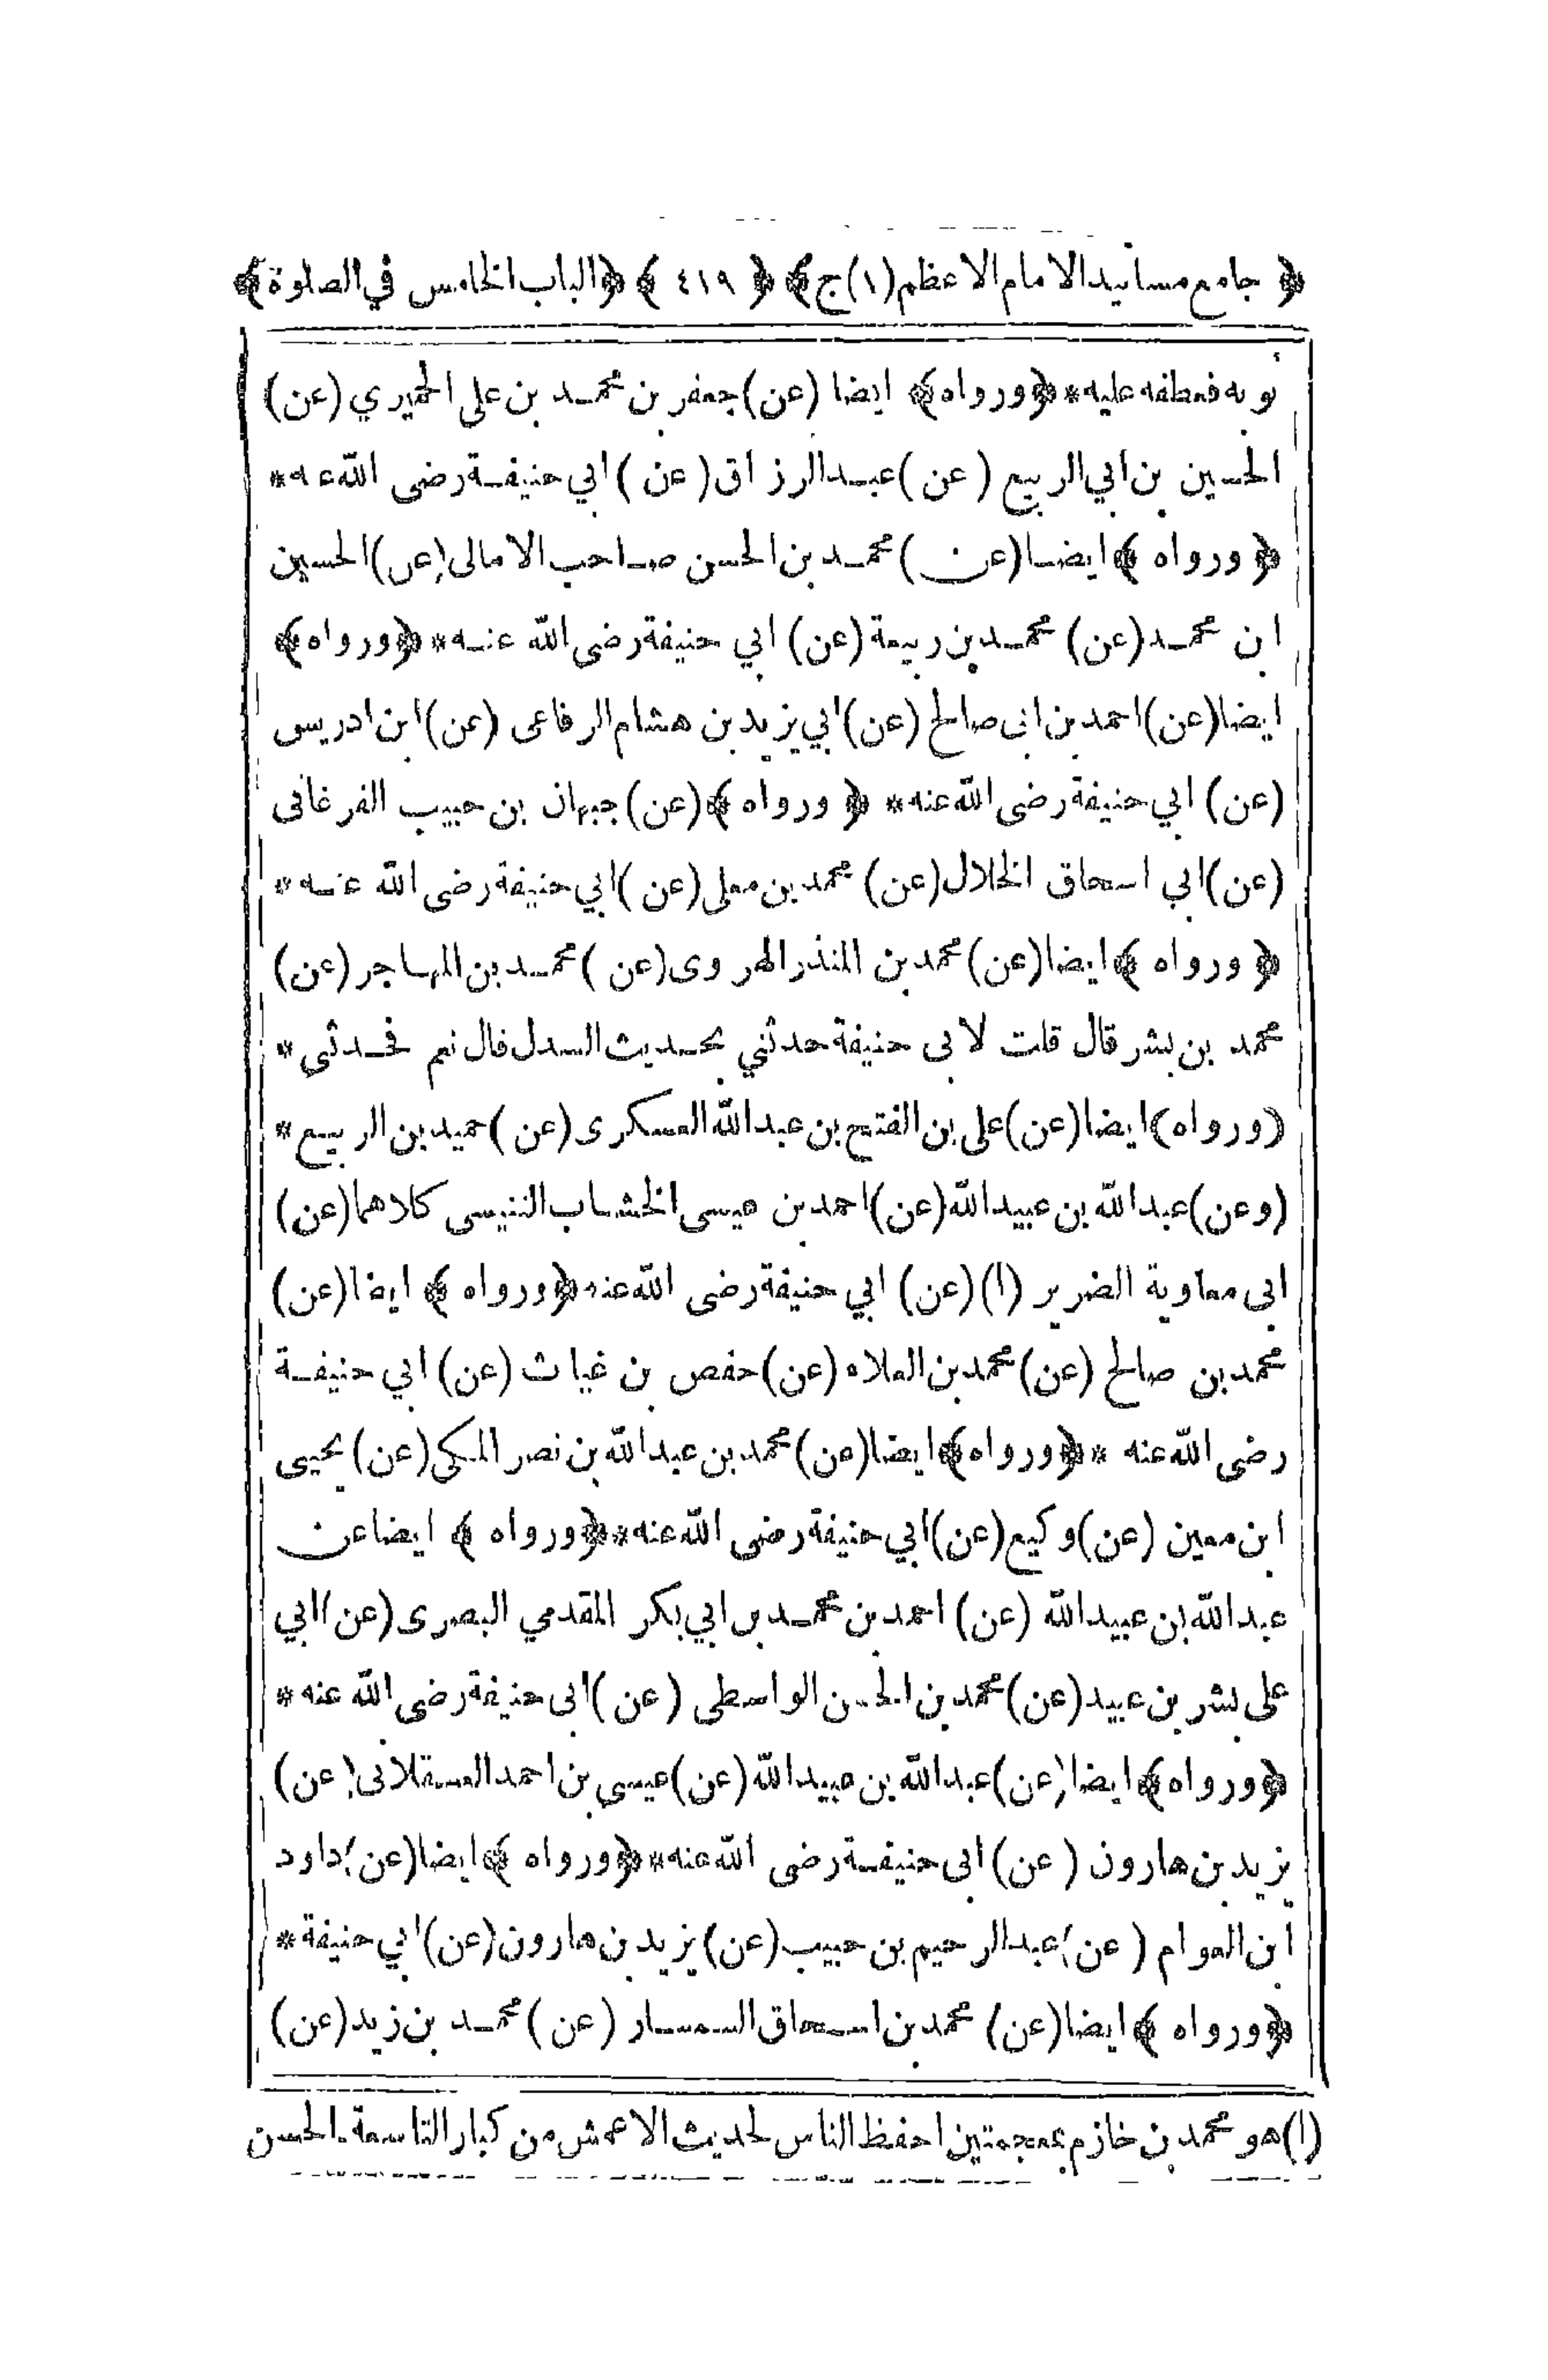 ﴿ جامع مسانيد الامام الاعظم (١) ج ﴾ ﴿ ٤١٩ ﴾ ﴿ الباب الخامس في الصلوة ﴾
ثوبه فعطفه عليه * ﴿ ورواه ﴾ ايضا (عن) جعفر بن محمد بن على الحميري (عن)
الحسين بن ابي الربيع (عن) عبد الرزاق (عن) ابي حنيفة رضى الله عنه *
﴿ ورواه ﴾ ايضا (عن) محمد بن الحسن صاحب الامالى (عن) الحسين
ابن محمد (عن) محمد بن ربيعة (عن) ابي حنيفة رضى الله عنه * ﴿ ورواه ﴾
ايضا (عن) احمد بن ابى صالح (عن) ابي يزيد بن هشام الرفاعى (عن) ابن ادريس
(عن) ابي حنيفة رضى الله عنه * ﴿ ورواه ﴾ (عن) جبهان بن حبيب الفرغانى
(عن) ابي اسحاق الخلال (عن) محمد بن معلى (عن) ابي حنيفة رضى الله عنه *
﴿ ورواه ﴾ ايضا (عن) محمد بن المنذر الهروى (عن) محمد بن المهاجر (عن)
محمد بن بشر قال قلت لابى حنيفة حدثني بحديث السدل قال نعم فحدثنى *
(ورواه) ايضا (عن) على بن الفتيح بن عبد الله العسكرى (عن) حميد بن الربيع *
(وعن) عبد الله بن عبيد الله (عن) احمد بن عيسى الخشاب التنيسى كلاهما (عن)
ابى معاوية الضرير (١) (عن) ابي حنيفة رضى الله عنه ﴿ ورواه ﴾ ايضا (عن)
محمد بن صالح (عن) محمد بن العلاء (عن) حفص بن غياث (عن) ابي حنيفة
رضى الله عنه * ﴿ ورواه ﴾ ايضا (عن) محمد بن عبد الله بن نصر المكى (عن) يحيى
ابن معين (عن) وكيع (عن) ابي حنيفة رضى الله عنه * ﴿ ورواه ﴾ ايضا عن
عبد الله بن عبيد الله (عن) احمد بن محمد بن ابي بكر المقدمي البصرى (عن) ابي
على بشر بن عبيد (عن) محمد بن الحسن الواسطى (عن) ابى حنيفة رضى الله عنه *
﴿ ورواه ﴾ ايضا (عن) عبد الله بن عبيد الله (عن) عيسى بن احمد العسقلانى (عن)
يزيد بن هارون (عن) ابى حنيفة رضى الله عنه * ﴿ ورواه ﴾ ايضا (عن) داود
ابن العوام (عن) عبد الرحيم بن حبيب (عن) يزيد بن هارون (عن) ابي حنيفة *
﴿ ورواه ﴾ ايضا (عن) محمد بن اسحاق السمسار (عن) محمد بن زيد (عن)
(١) هو محمد بن خازم بمعجمتين احفظ الناس لحديث الاعمش من كبار التاسعة . الحسن